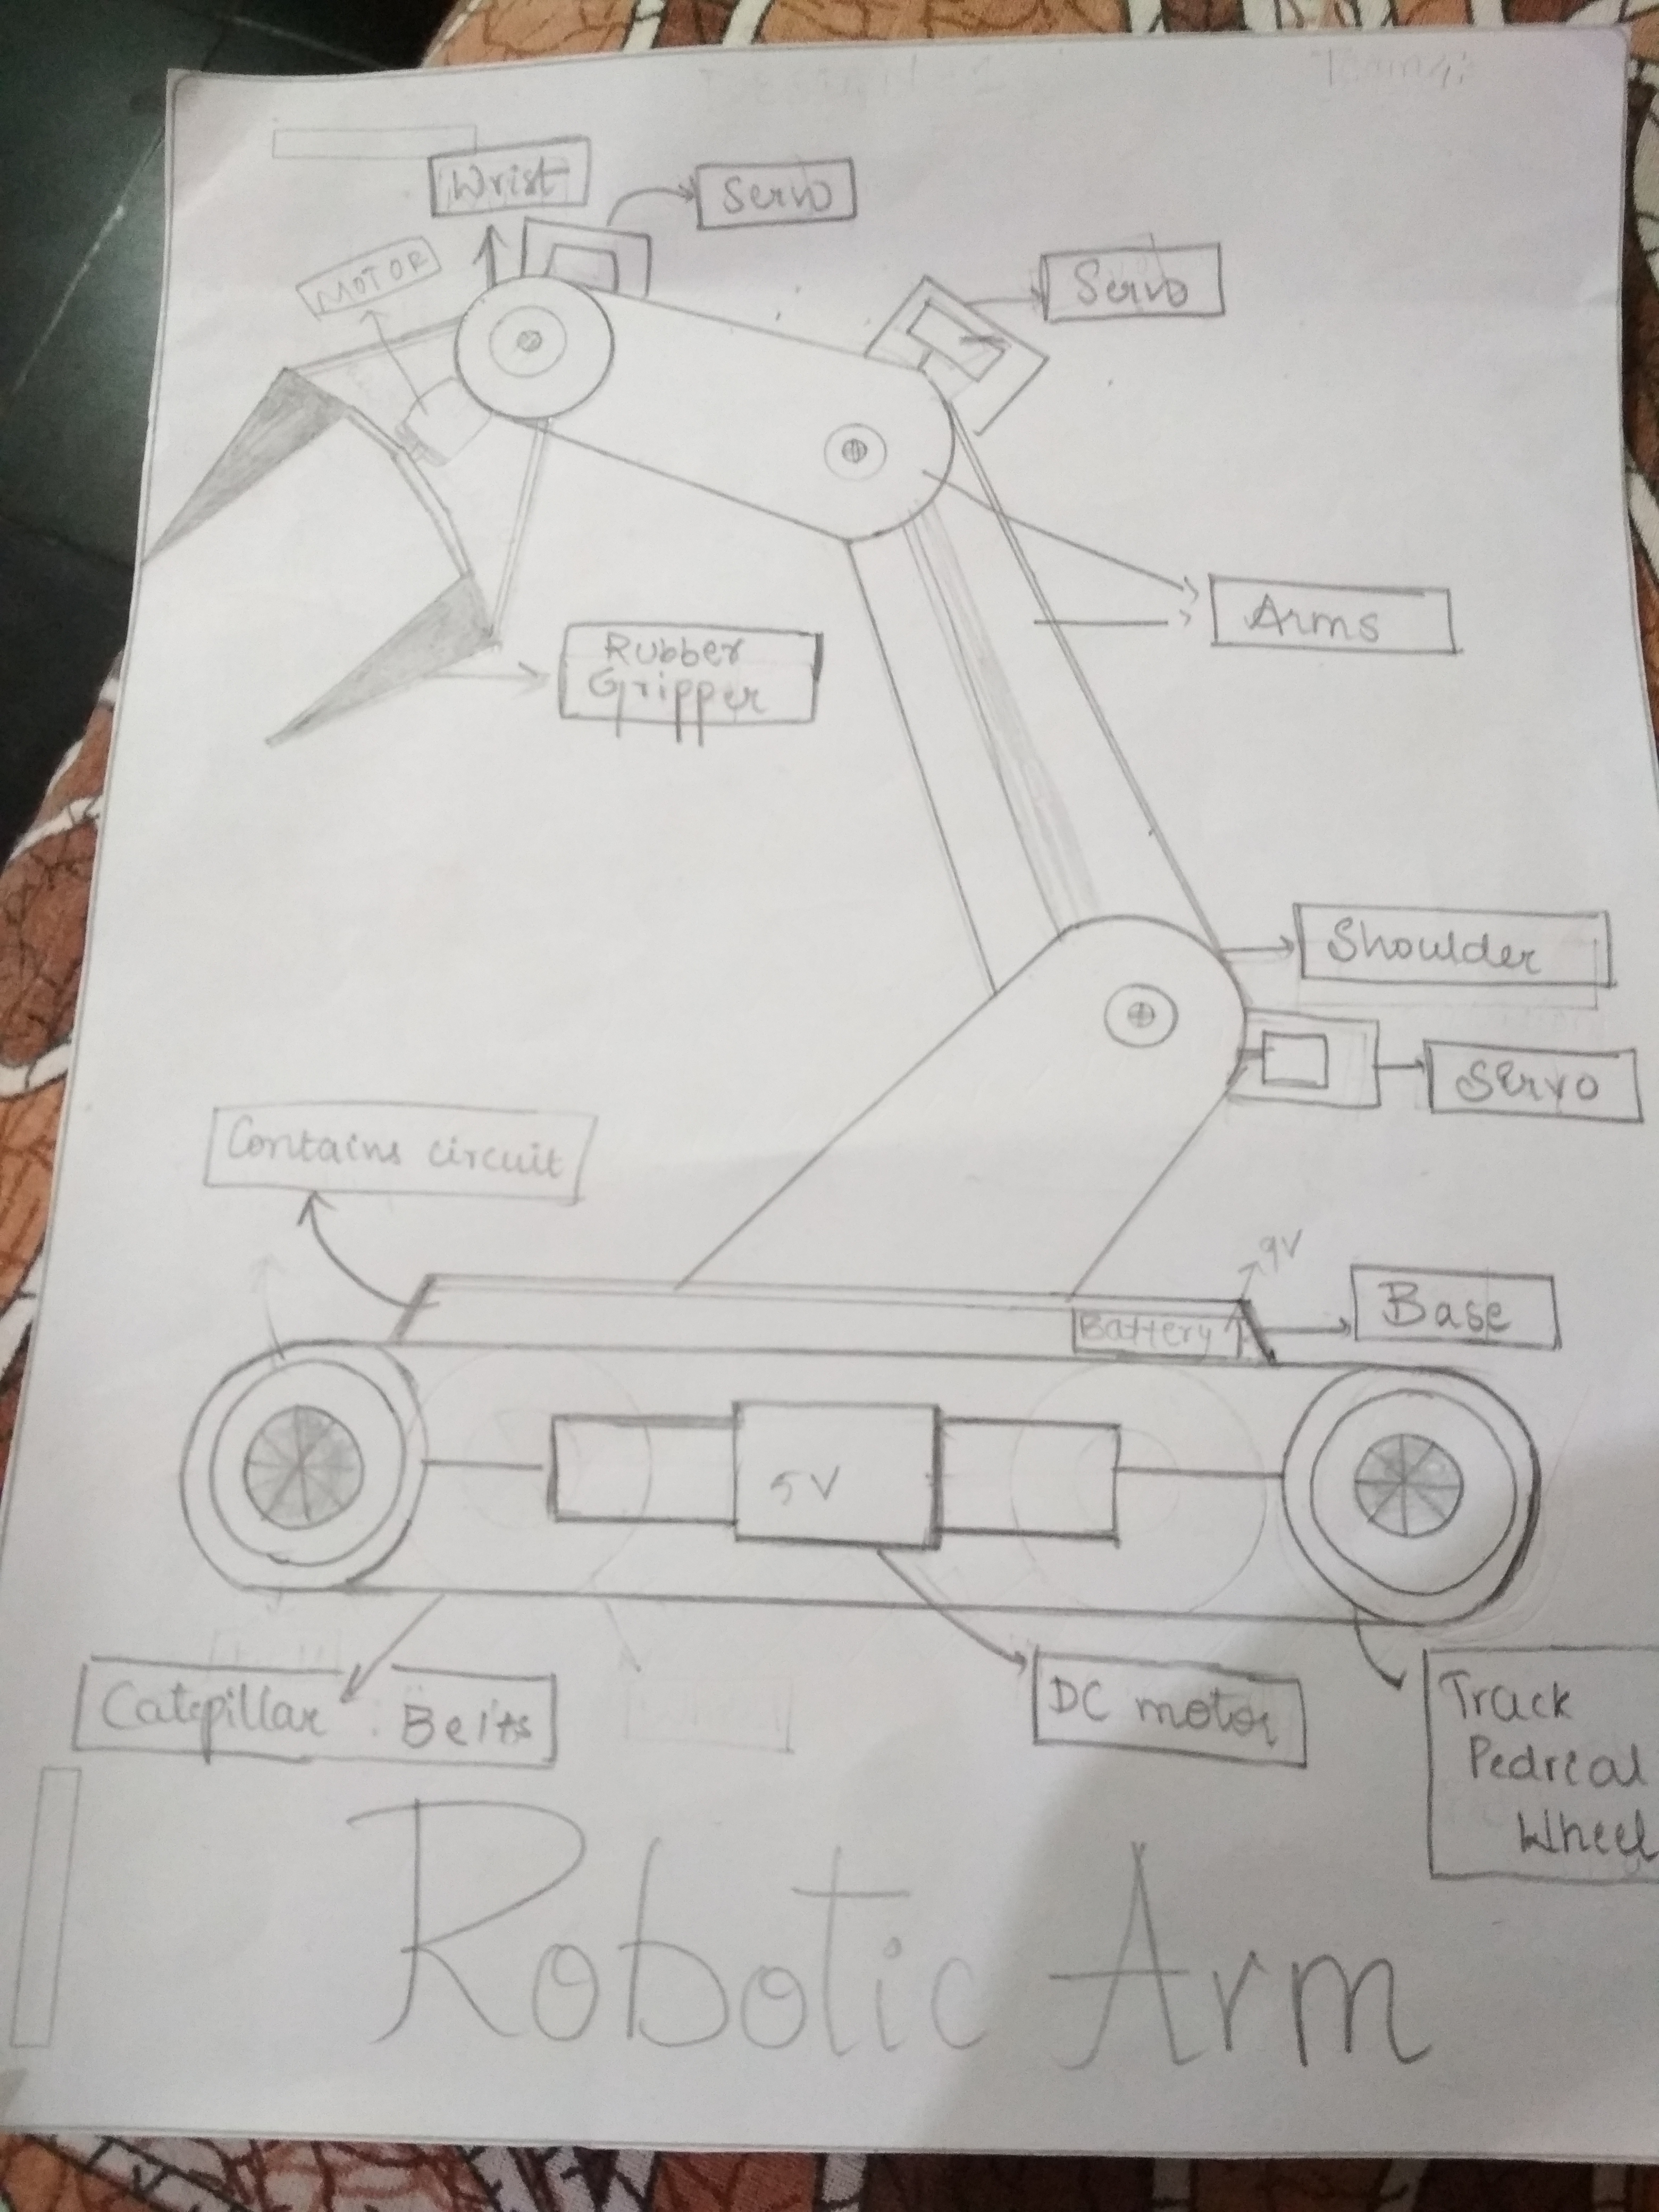 Wrist
Servo
MOTOR
Servo
Arms
Rubber
Gripper
Shoulder
Servo
Contains circuit
9V
Battery
Base
5V
Catepillar Belts
DC motor
Track
Pedrial
Wheel
Robotic Arm